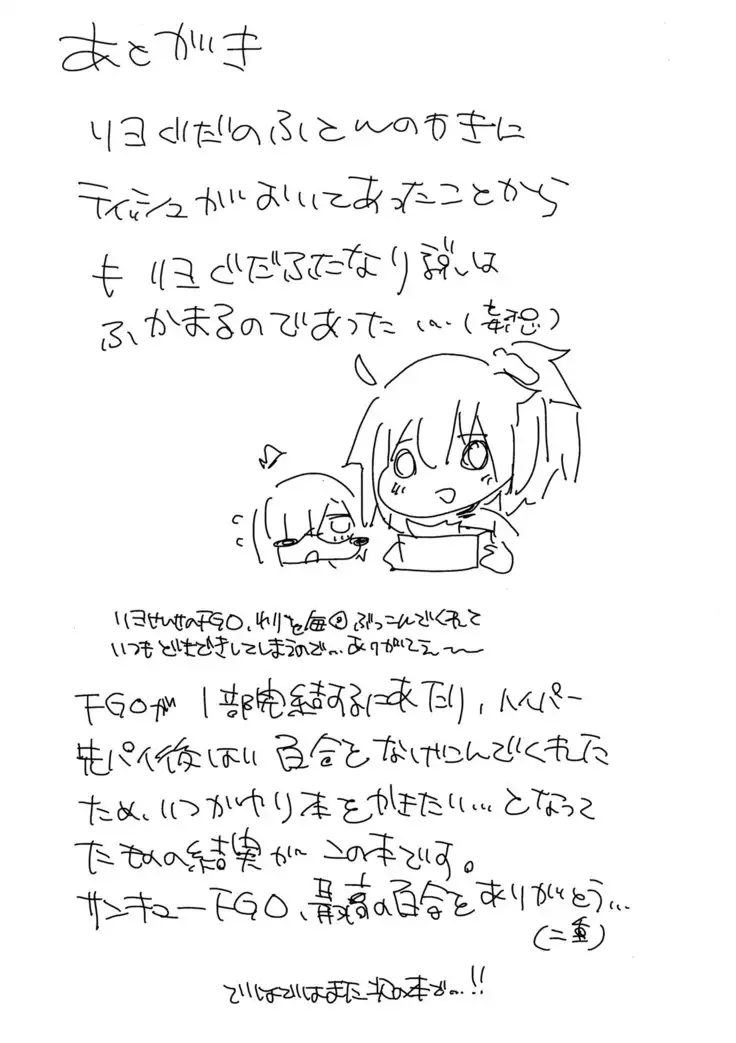 あとがき
リヨぐだのふとんのわきに
ティッシュがおいてあったことから
も リヨぐだふたなり説は
ふかまるのであった…(妄想)
リヨせんせのFGO、ネタを毎回ぶっこんでくれて
いつもどきどきしてしまうので…ありがてえ〜〜
FGOが1部完結するにあたり、ハイパー
先パイ後はい百合をなげこんでくれた
ため、いつかやり本をかきたい…となって
たものの結果がこの本です。
サンキューFGO、最高の百合をありがとう…
(二重)
ではではまた次の本で…!!